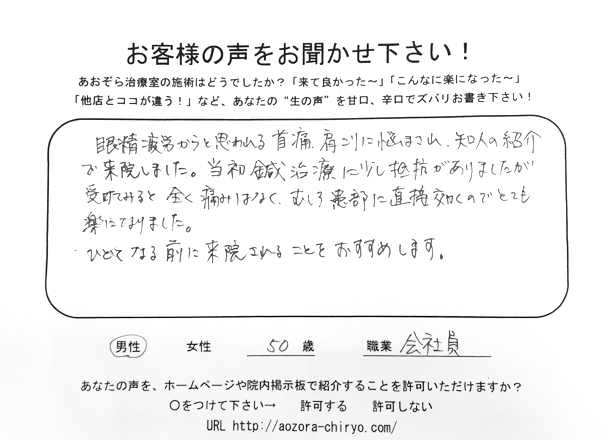 お客様の声をお聞かせ下さい！
あおぞら治療室の施術はどうでしたか？「来て良かった～」「こんなに楽になった～」
「他店とココが違う！」など、あなたの“生の声”を甘口、辛口でズバリお書き下さい！
眼精疲労からと思われる首痛、肩こりに悩まされ、知人の紹介
で来院しました。当初鍼治療に少し抵抗がありましたが
受けてみると全く痛みはなく、むしろ患部に直接効くのでとても
楽になりました。
ひどくなる前に来院されることをおすすめします。
男性 女性 50歳 職業 会社員
あなたの声を、ホームページや院内掲示板で紹介することを許可いただけますか？
〇をつけて下さい→ 許可する 許可しない
URL http://aozora-chiryo.com/